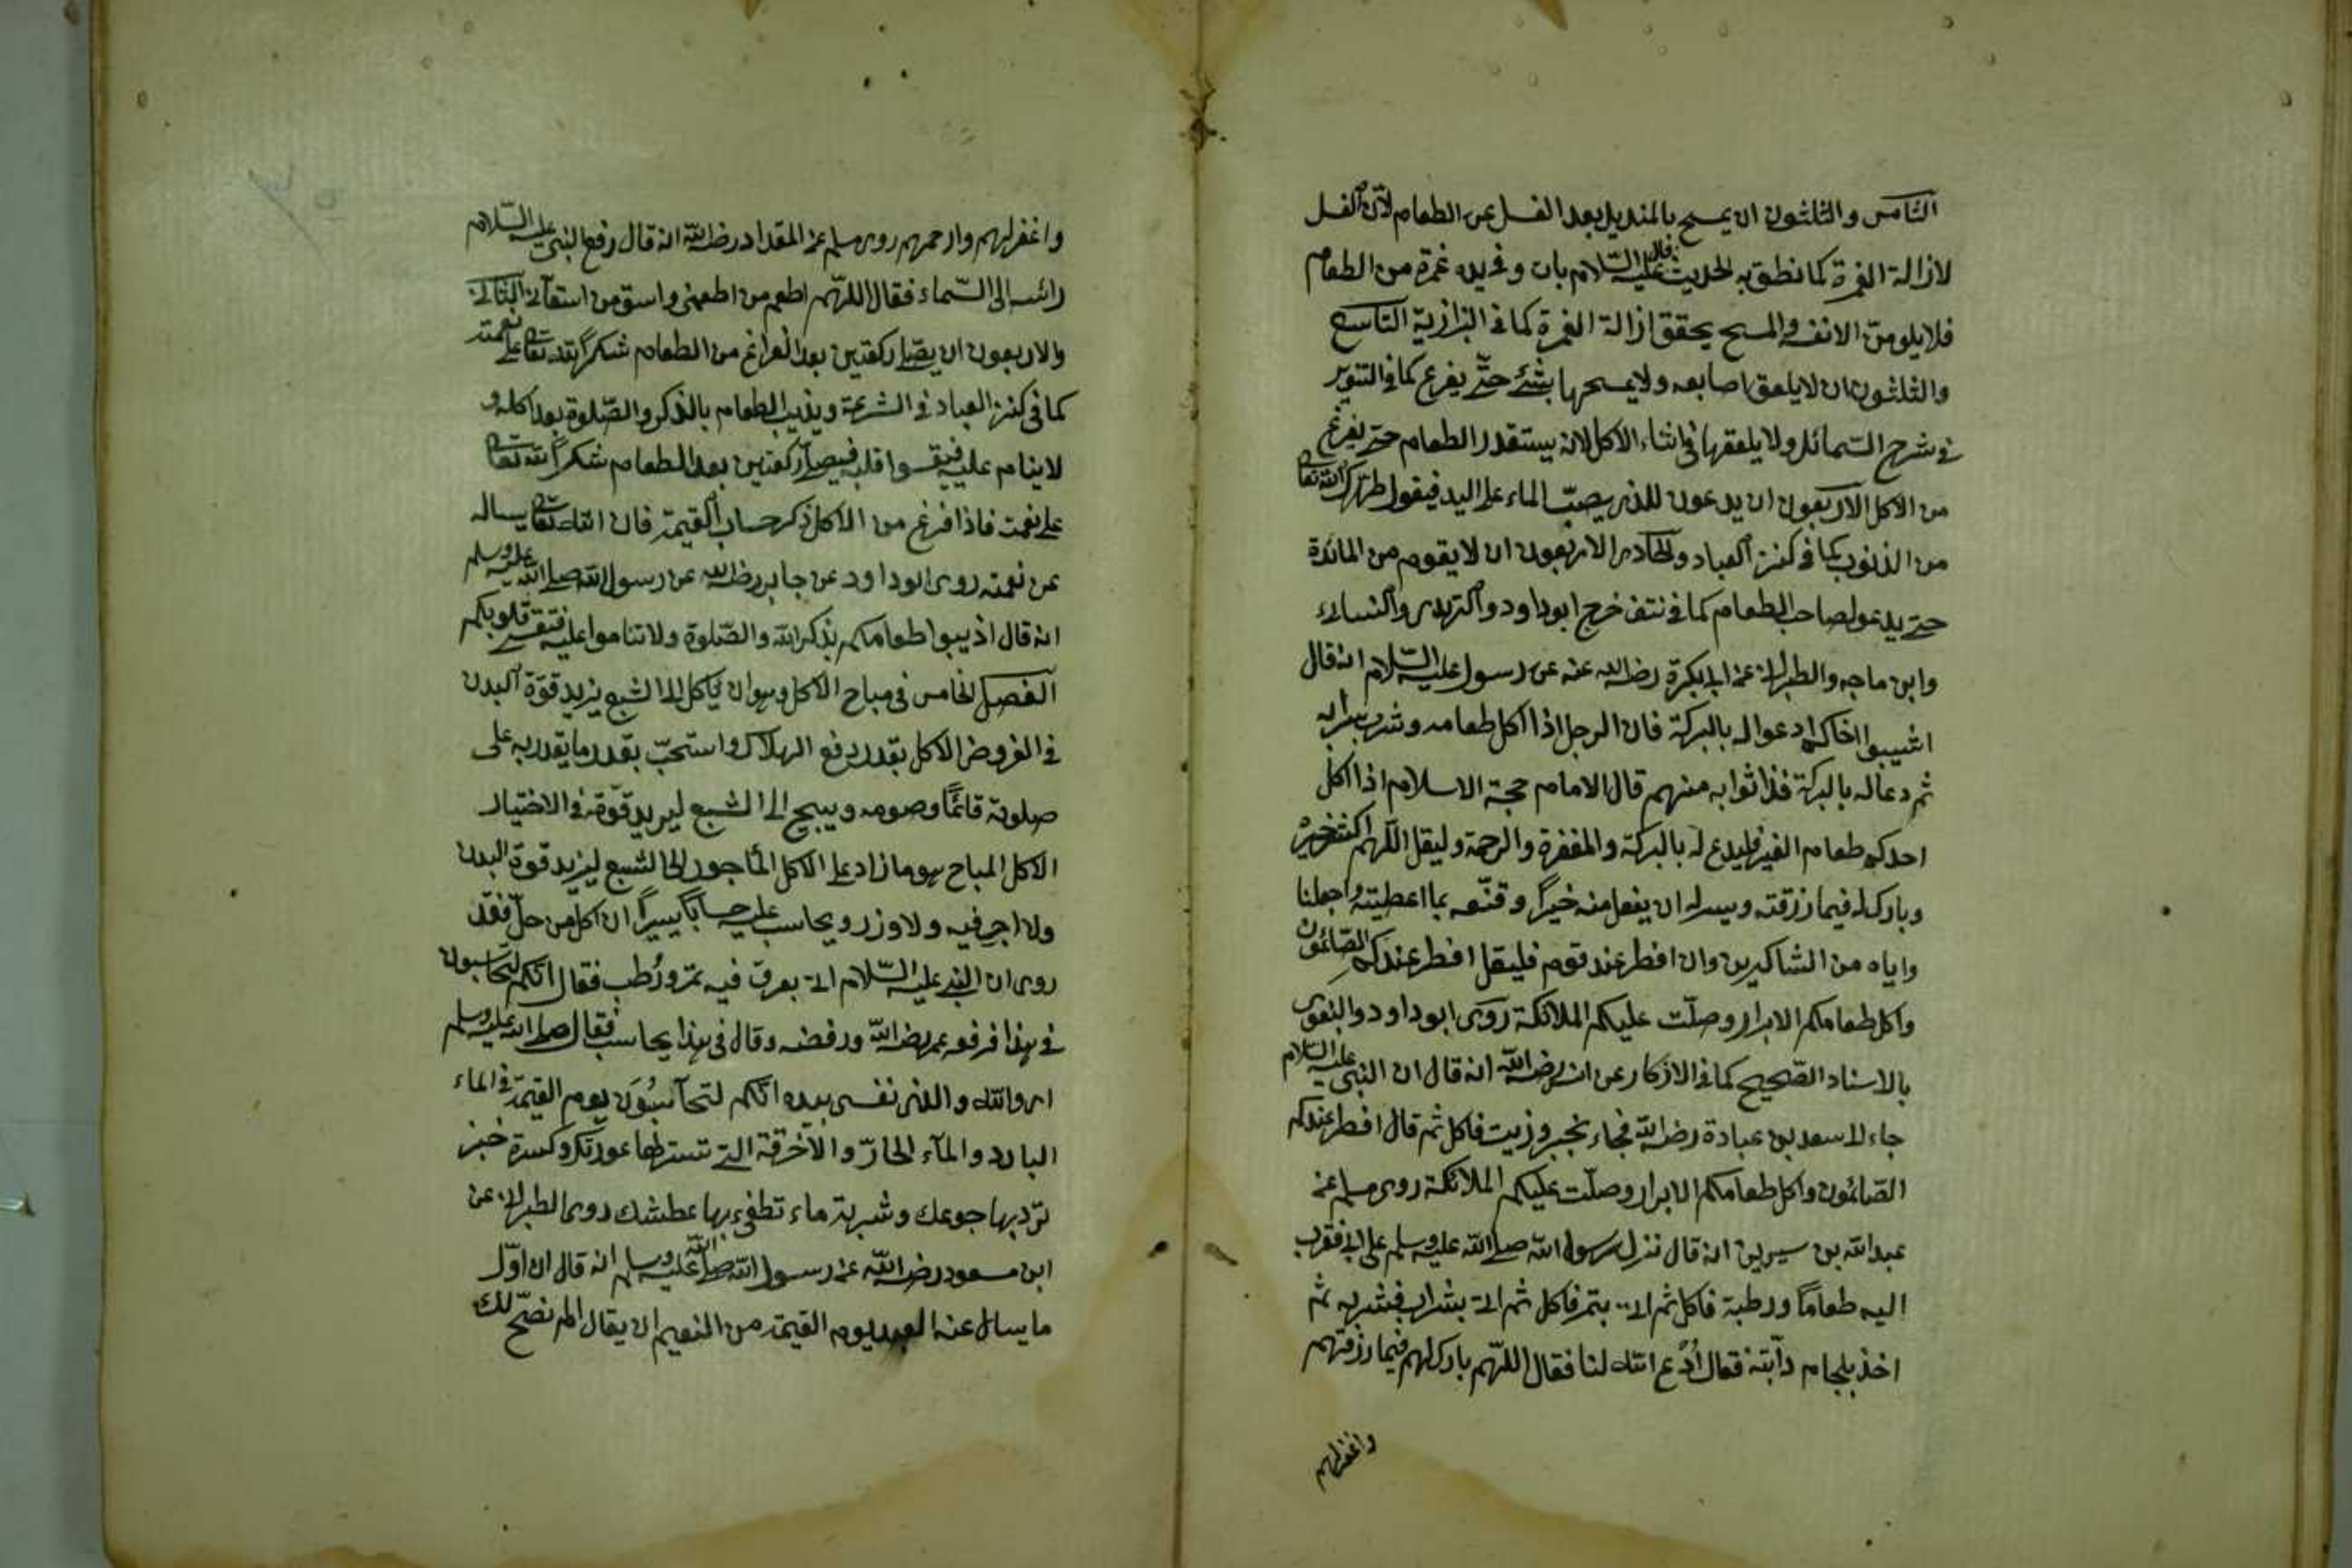 الثامن والثلثون ان يمسح بالمنديل بعد الغسل عن الطعام لان الغسل
لازالة الغمرة كما نطق به الحديث قال عليه السلام بات وفي يده غمرة من الطعام
فلا يلومن الانفسه والمسح يحقق ازالة الغمرة كما في البزازية التاسع
والثلثون ان لا يلعق اصابعه ولا يمسحها بشئ حتى يفرغ كما في التنوير
في شرح الشمائل ولا يلعقها في اثناء الاكل لانه يستقذر الطعام حتى يفرغ
من الاكل الاربعون ان يدعون للذي يصب الماء على اليد فيقول طهرك الله تعالى
من الذنوب كما في كنز العباد والحادي الاربعون ان لا يقوم من المائدة
حتى يدعو لصاحب الطعام كما في نتف خرج ابوداود والترمذي والنسائي
وابن ماجه والطبراني عن ابي بكرة رضي الله عنه عن رسول عليه السلام انه قال
اثيبوا اخاكم ادعوا له بالبركة فان الرجل اذا اكل طعامه وشرب شرابه
ثم دعا له بالبركة فذا ثوابه منهم قال الامام حجة الاسلام اذا اكل
احدكم طعام الغير فليدع له بالبركة والمغفرة والرحمة وليقل اللهم اكثر خيره
وبارك له فيما رزقته ويسر له ان يفعل منه خيرا وقنعه بما اعطيته واجعلنا
واياه من الشاكرين وان افطر عند قوم فليقل افطر عندكم الصائمون
واكل طعامكم الابرار وصلت عليكم الملائكة روى ابوداود والبغوي
بالاسناد الصحيح كما في الاذكار عن انس رضي الله انه قال ان النبي عليه السلام
جاء لا سعد بن عبادة رضي الله فجاء بخبز وزيت فاكل ثم قال افطر عندكم
الصائمون واكل طعامكم الابرار وصلت عليكم الملائكة روى مسلم عن
عبد الله بن سيرين انه قال نزل رسول الله صلى الله عليه وسلم على ابي فقرب
اليه طعاما ورطبة فاكل ثم اتى بتمر فاكل ثم اتى بشراب فشربه ثم
اخذ بلجام دابته فقال ادع الله لنا فقال اللهم بارك لهم فيما رزقتهم
واغفر لهم
واغفر لهم وارحمهم روى مسلم عن المقداد رضي الله انه قال رفع النبي عليه السلام
رائسه الى السماء فقال اللهم اطعم من اطعمني واسق من استقاني الثاني
والاربعون ان يصلي ركعتين بعد الفراغ من الطعام شكرا لله تعالى على نعمته
كما في كنز العباد في الشرعة ويذيب الطعام بالذكر والصلوة بعد اكله و
لا ينام عليه فيقسوا قلبه فيصلي ركعتين بعد الطعام شكرا لله تعالى
على نعمته فاذا فرغ من الاكل ذكر حساب القيمة فان الله تعالى يساله
عن نعمته روى ابوداود عن جابر رضي الله عن رسول الله صلى الله عليه وسلم
انه قال اذيبوا طعامكم بذكر الله والصلوة ولا تناموا عليه فتقسى قلوبكم
الفصل الخامس في مباح الاكل وهو ان ياكل الى الشبع يزيد قوة البدن
في الفروض الاكل بقدر دفع الهلاك واستحب بقدر ما يقدر به على
صلوته قائما وصومه ويبيح الى الشبع ليزيد قوة في الاختيار
الاكل المباح هو ما زاد على الاكل المأجور الى الشبع ليزيد قوة البدن
ولا اجر فيه ولا وزر ويحاسب عليه حسابا يسيرا ان اكل من حل فقد
روى ان النبي عليه السلام اتى بعرق فيه تمر ورطب فقال انكم لتحاسبون
في هذا فرفع عمر رضي الله ورفضه وقال في هذا يحاسب فقال صلى الله عليه وسلم
اي والله والذي نفسي بيده انكم لتحاسبون يوم القيمة في الماء
البارد والماء الحار والا خرقة التي تستر بها عورتك وكسرة خبز
ترد بها جوعك وشربة ماء تطفئ بها عطشك روى الطبراني عن
ابن مسعود رضي الله عن رسول الله صلى الله عليه وسلم انه قال ان اول
ما يسال عنه العبد يوم القيمة من النعيم ان يقال الم نصح لك